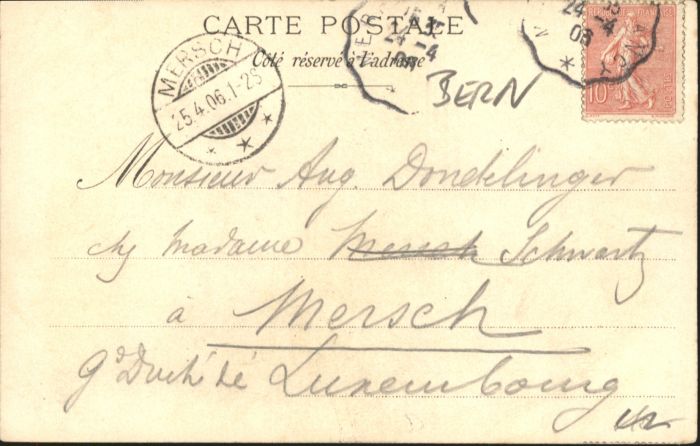 CARTE POSTALE
Côté réservé à l'adresse
MERSCH
25.4.06.1-2S
24 -4
06
24 -4
06
BERN
10
Monsieur Aug. Dondelinger
chz Madame Mersch Schwartz
à Mersch
Gd Duché de Luxembourg